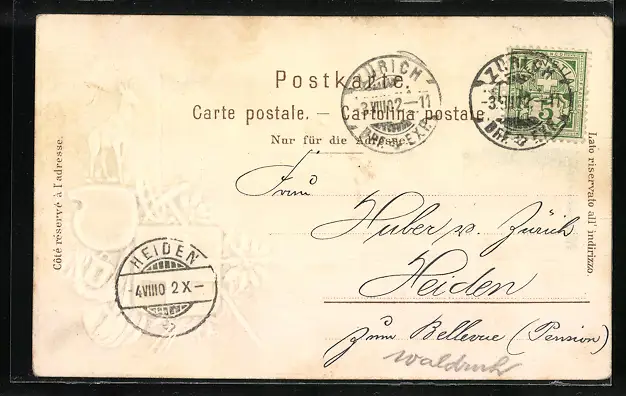 Postkarte.
Carte postale. — Cartolina postale.
Nur für die Adresse.
Côté réservé à l'adresse.
Lato riservato all' indirizzo.
ZÜRICH
-3.VIII.02.-11
BRF. EXP.
ZÜRICH
-3.VIII.02.-11
BRF. EXP.
5
HEIDEN
-4VIII02X-
Frau
Huber v. Zürich
Heiden
zum Bellevue (Pension)